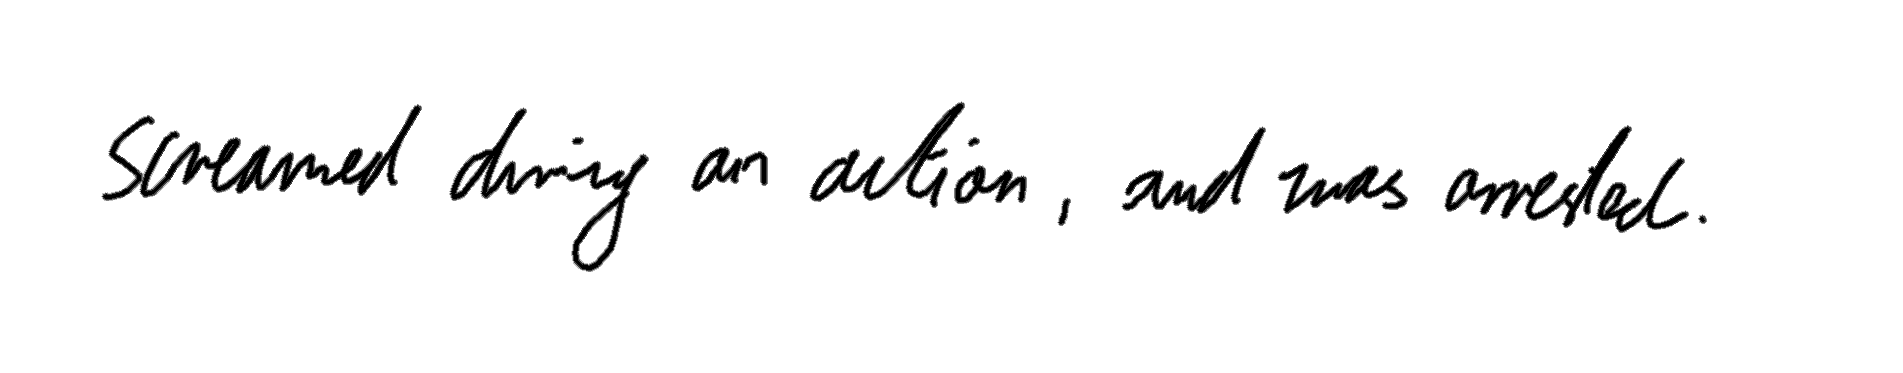 screamed during an action, and was arrested.